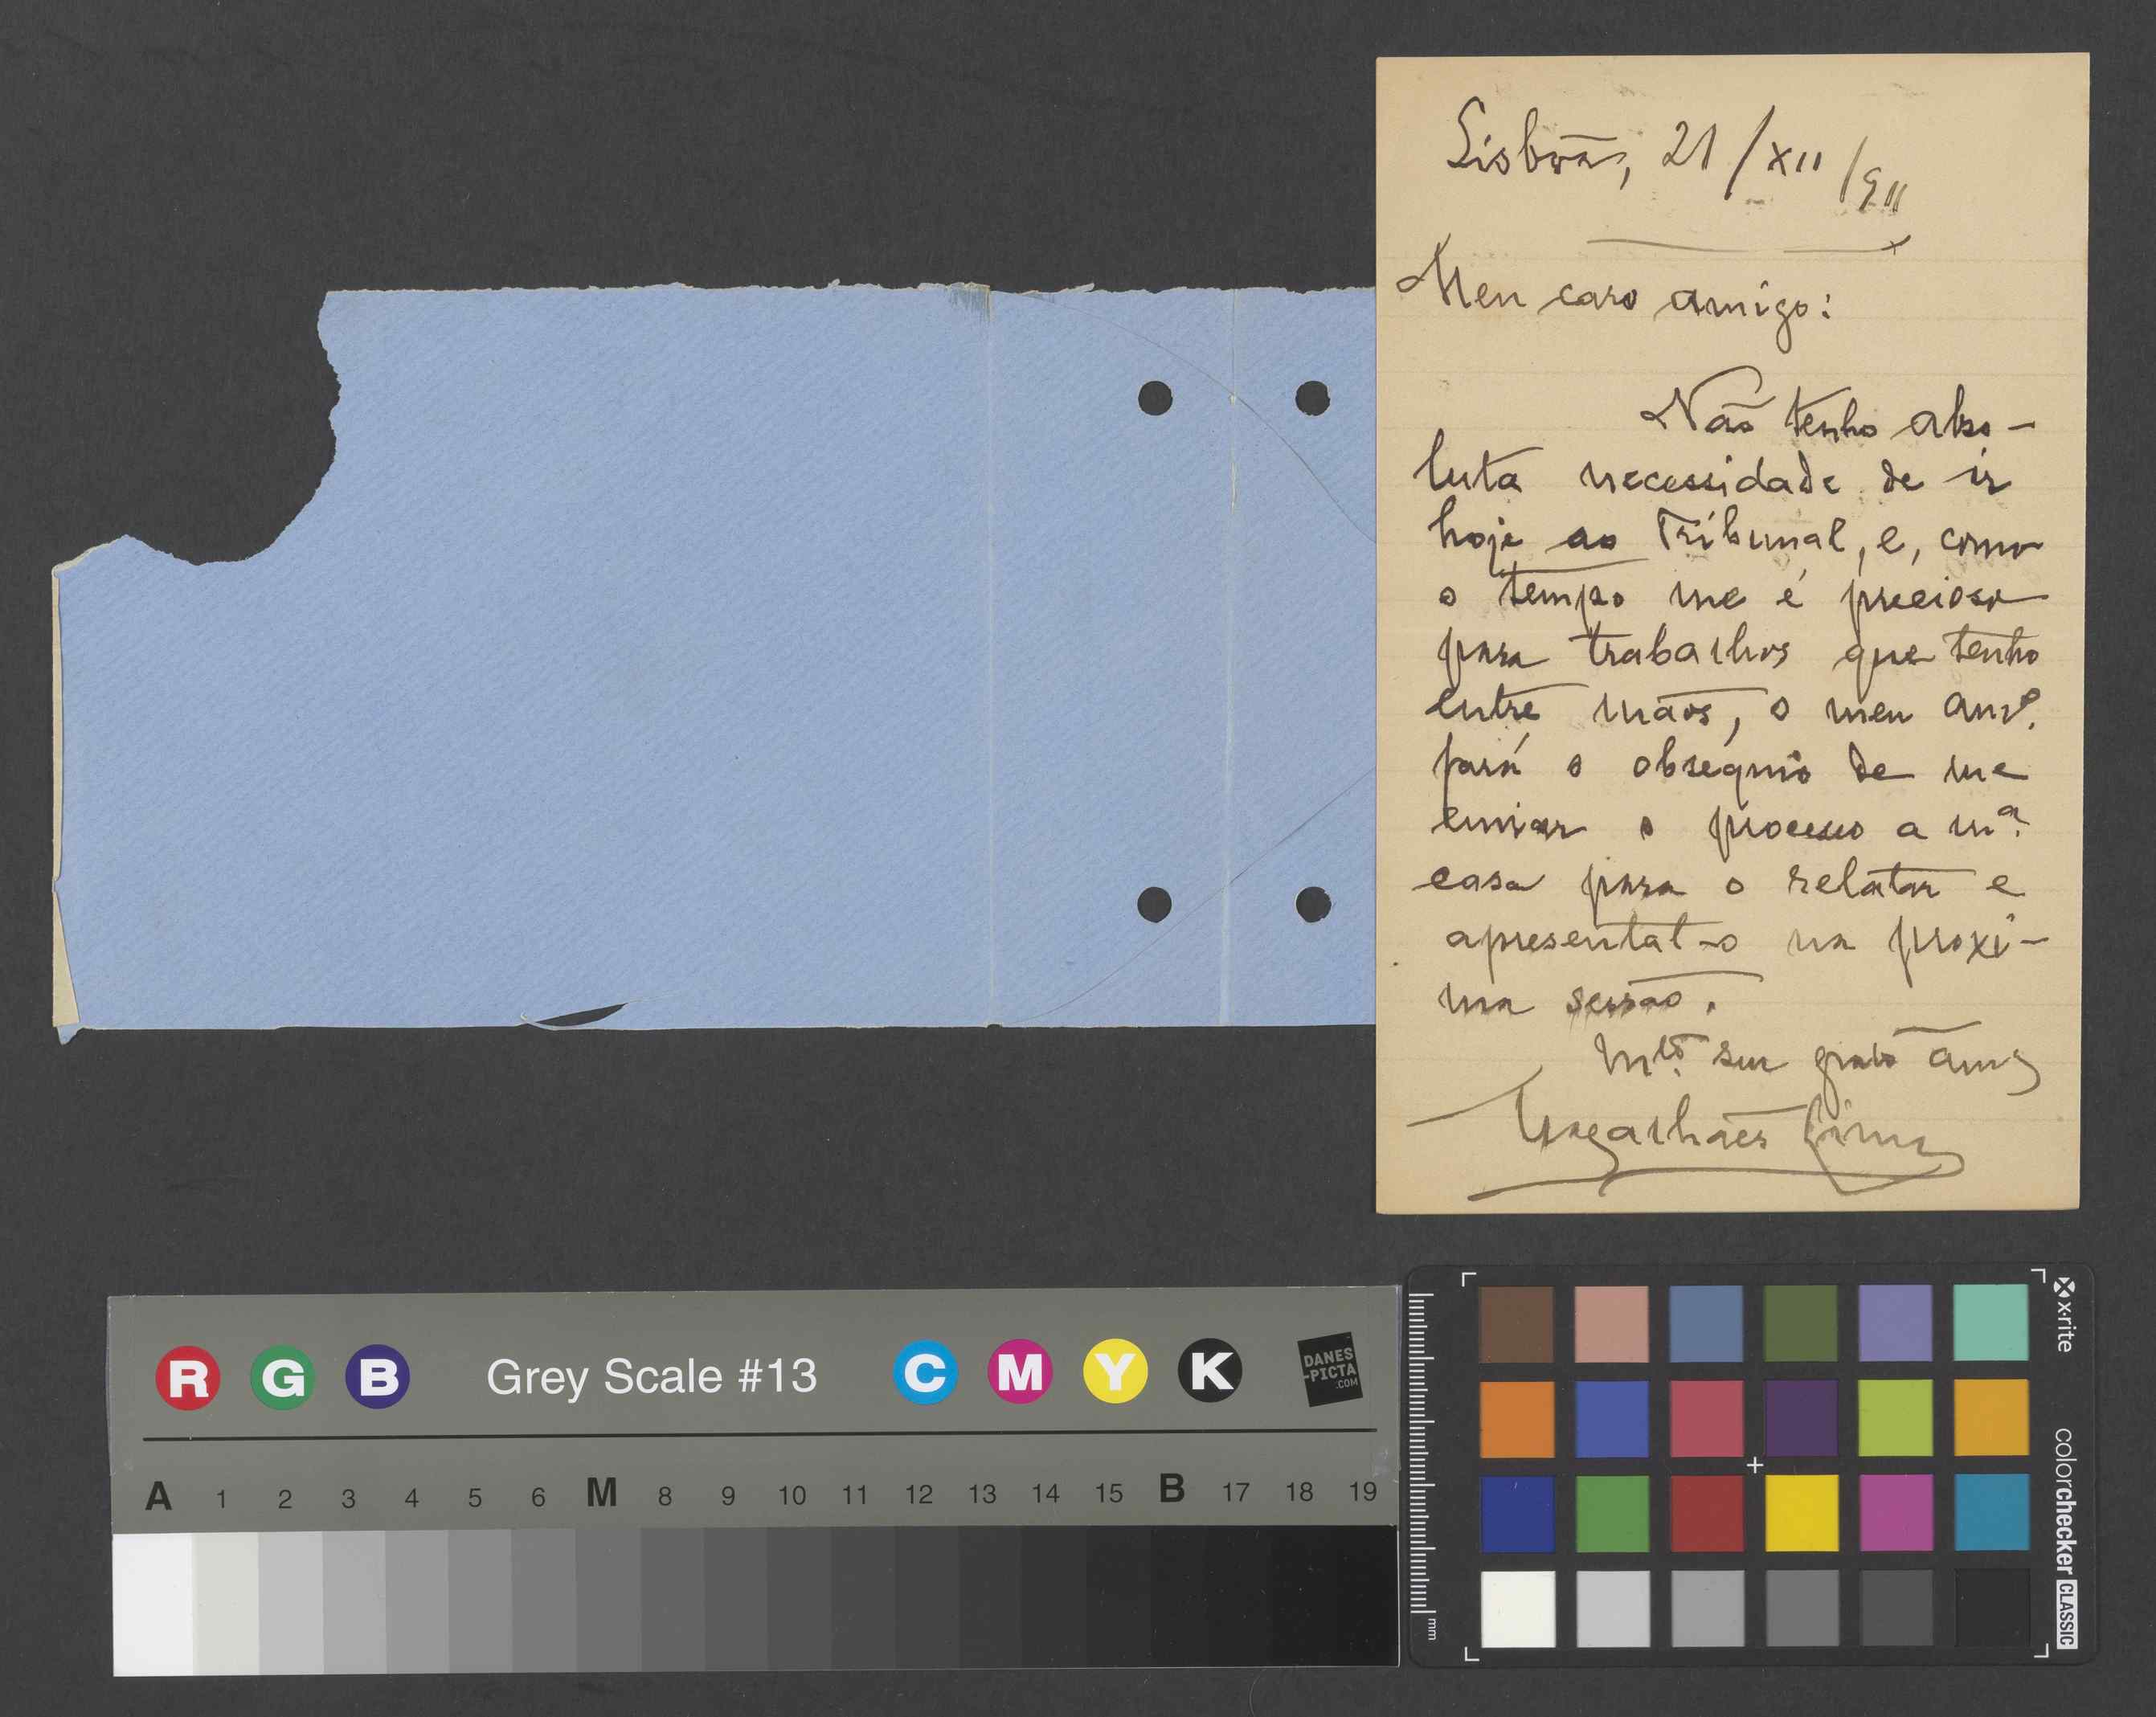 Lisboa, 21/XII/911
Meu caro amigo:
Não tenho abso-
luta necessidade de ir
hoje ao Tribunal, e, como
o tempo me é precioso
para trabalhos que tenho
entre mãos, o meu amº.
fará o obséquio de me
enviar o processo a mª.
casa para o relatar e
apresental-o na proxi-
ma sessão.
Mtº. seu grato amº
Magalhães Lima
R G B Grey Scale #13 C M Y K DANES
-PICTA
.COM
A 1 2 3 4 5 6 M 8 9 10 11 12 13 14 15 B 17 18 19
x-rite
colorchecker CLASSIC
mm